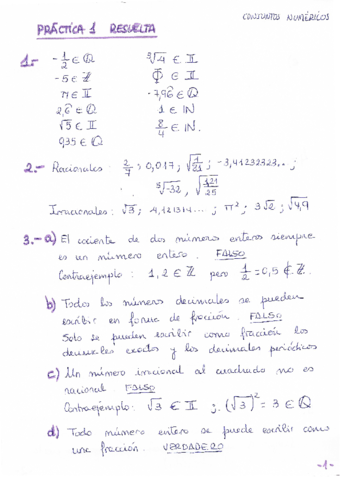 CONJUNTOS NUMÉRICOS
PRÁCTICA 1 RESUELTA
1.- -1/2 ∈ ℚ ∛4 ∈ 𝕀
-5 ∈ ℤ Φ ∈ 𝕀
π ∈ 𝕀 -7,96 ∈ ℚ
2,6 ∈ ℚ 1 ∈ ℕ
√5 ∈ 𝕀 8/4 ∈ ℕ.
0,35 ∈ ℚ
2.- Racionales: 2/7 ; 0,017 ; -3,41232323.. ;
⁵√-32 , √121/25
Irracionales: √3 ; 4,121314... ; π² ; 3√2 ; √4,9
3.- a) El cociente de dos números enteros siempre
es un número entero. FALSO
Contraejemplo: 1, 2 ∈ ℤ pero 1/2 = 0,5 ∉ ℤ.
b) Todos los números decimales se pueden
escribir en forma de fracción. FALSO
Solo se pueden escribir como fracción los
decimales exactos y los decimales periódicos
c) Un número irracional al cuadrado no es
racional FALSO
Contraejemplo: √3 ∈ 𝕀 ; (√3)² = 3 ∈ ℚ
d) Todo número entero se puede escribir como
una fracción. VERDADERO
-1-